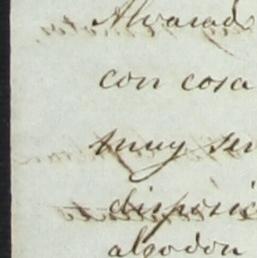 Alvarad
con cosa
muy ser
disposic
algodon